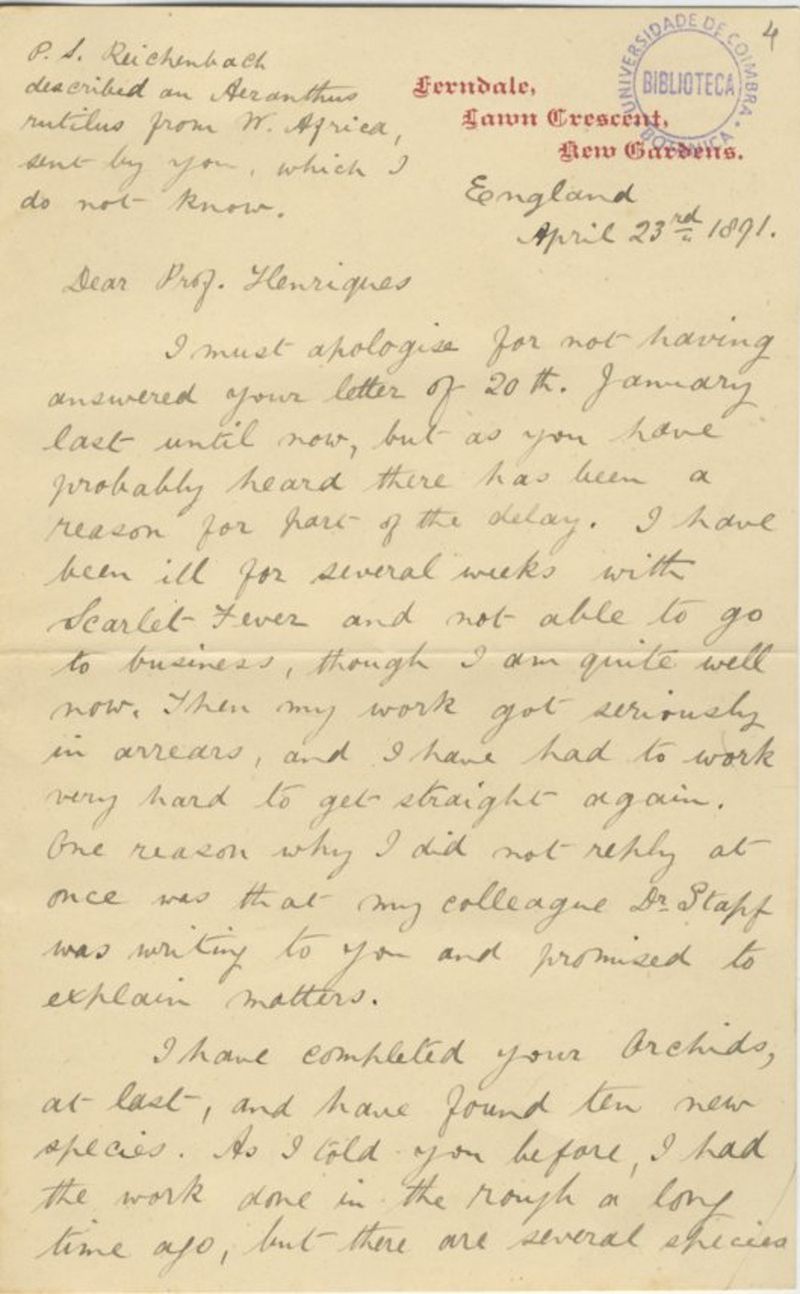 4
P. S. Reichenbach
described an Aeranthus
rutilus from W. Africa,
sent by you, which I
do not know.
UNIVERSIDADE DE COIMBRA
BIBLIOTECA
BOTANICA
Ferndale,
Lawn Crescent,
Kew Gardens.
England
April 23rd 1891.
Dear Prof. Henriques
I must apologise for not having
answered your letter of 20th. January
last until now, but as you have
probably heard there has been a
reason for part of the delay. I have
been ill for several weeks with
Scarlet Fever and not able to go
to business, though I am quite well
now. Then my work got seriously
in arrears, and I have had to work
very hard to get straight again.
One reason why I did not reply at
once was that my colleague Dr. Stapf
was writing to you and promised to
explain matters.
I have completed your Orchids,
at last, and have found ten new
species. As I told you before, I had
the work done in the rough a long
time ago, but there are several species